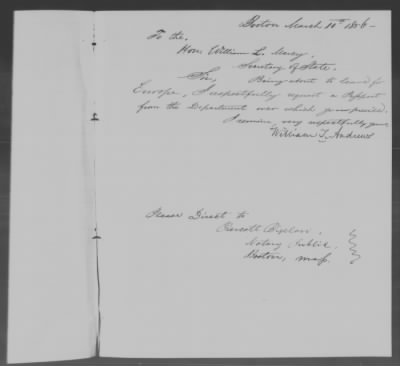 Boston March 10th 1856-
To the.
Hon. William L. Marcy.
Secretary of State.
Sir, Being about to leave for
Europe, I respectfully request a Passport
from the Department over which you preside.
I remain, very respectfully yours
William T. Andrews
Please Direct to
Prescott Bigelow.
Notary Public
Boston, Mass.